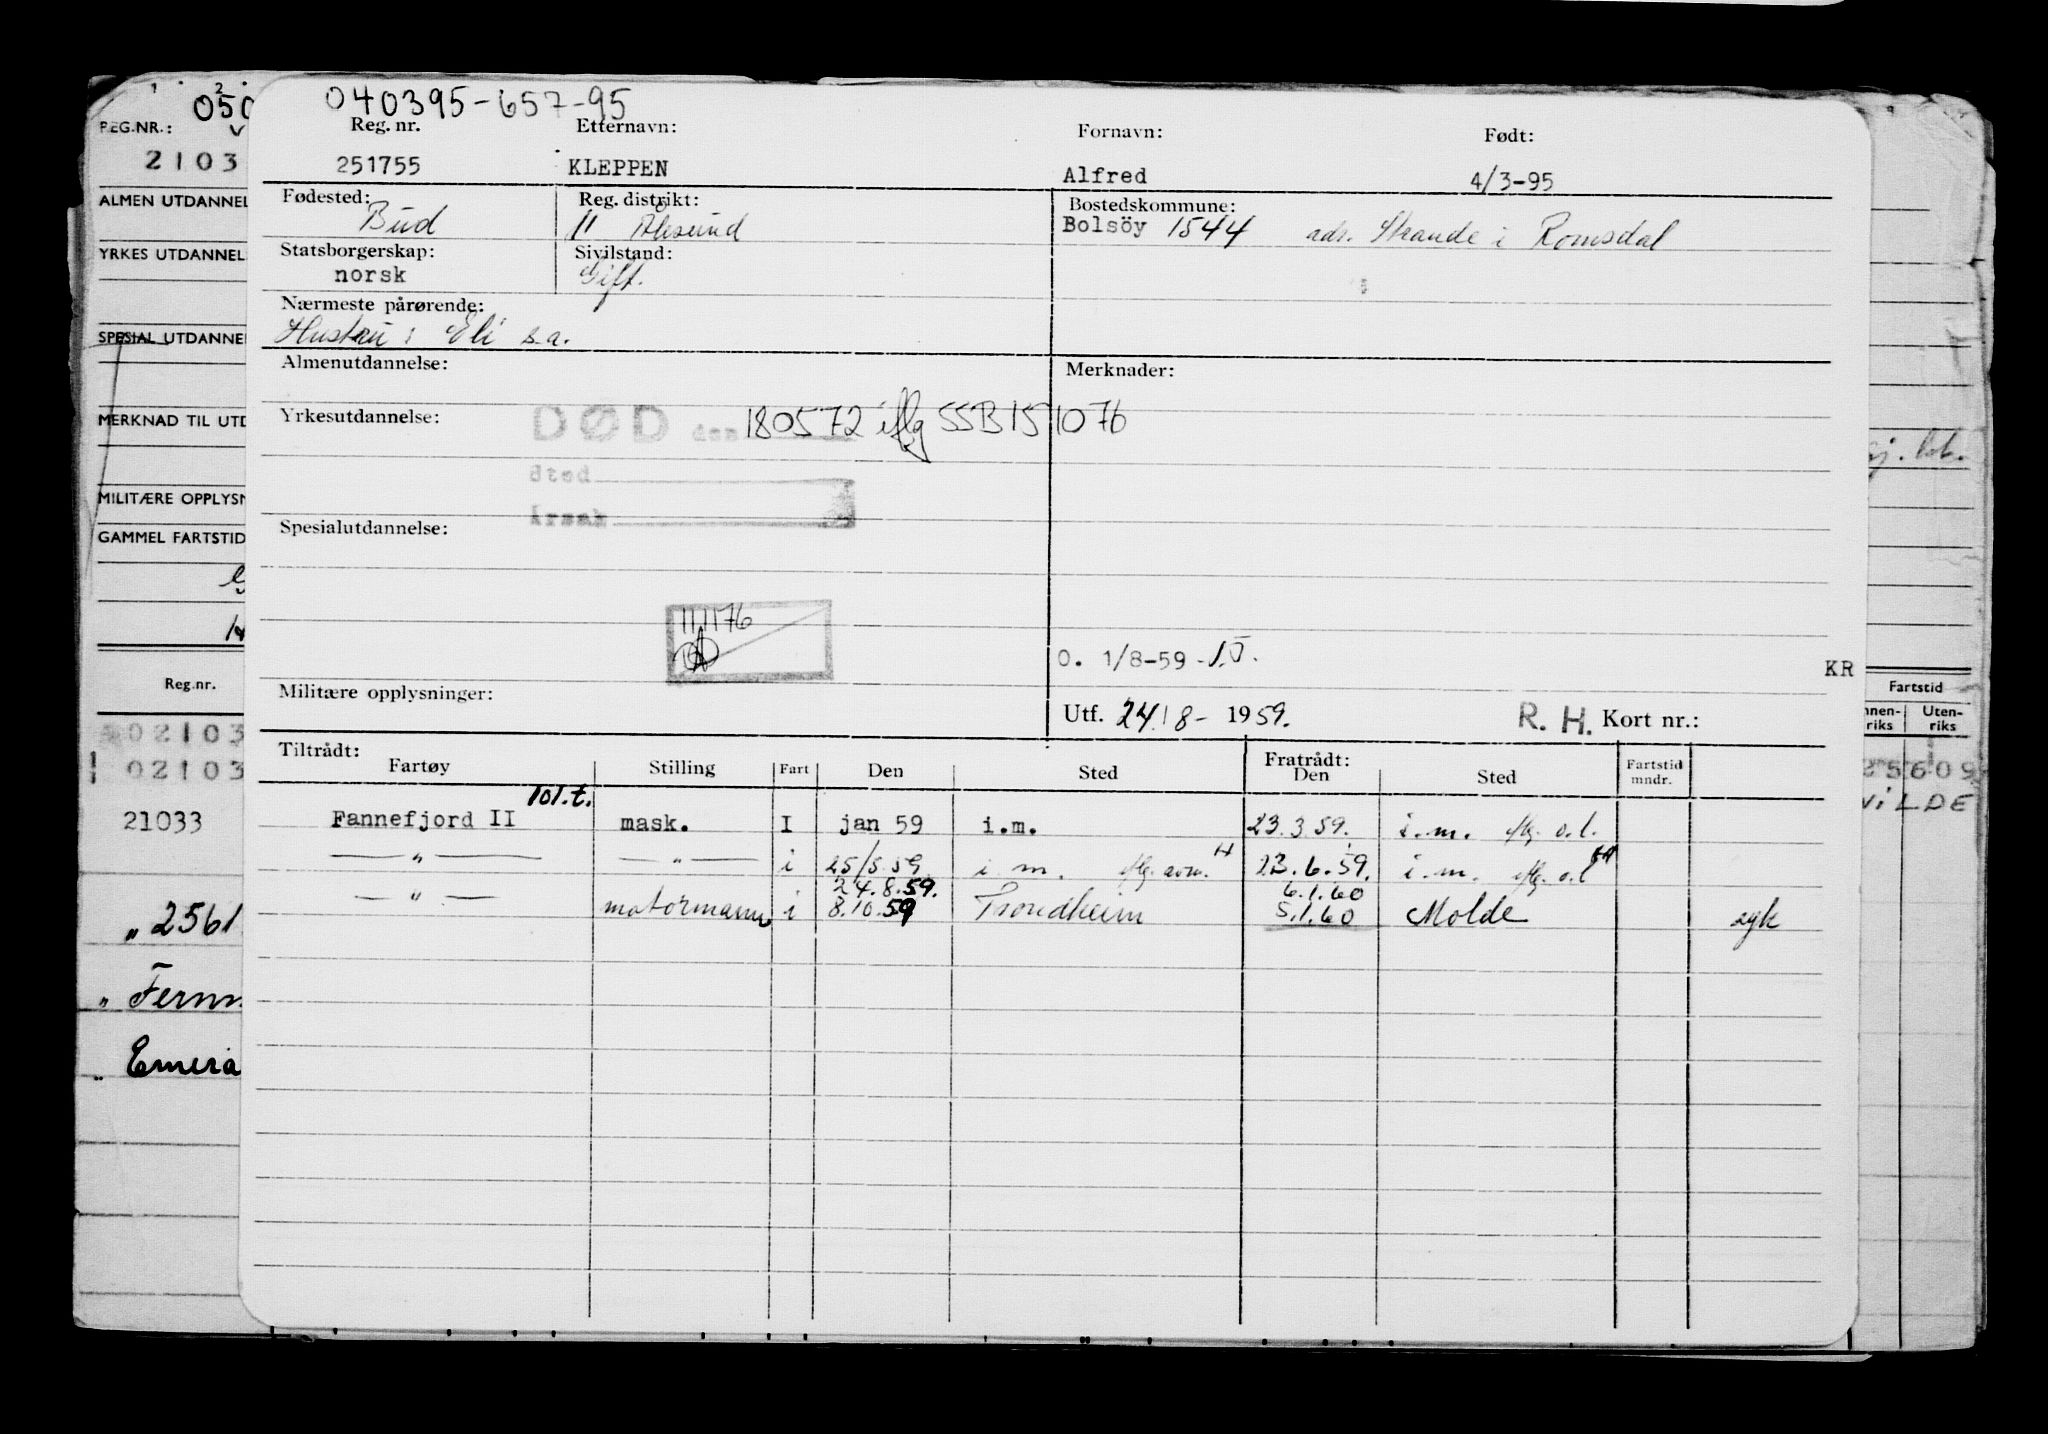 040395-657-95
Reg. nr. Etternavn: Fornavn: Født:
251755 KLEPPEN Alfred 4/3-95
Fødested: Reg. distrikt: Bostedskommune:
Bud 11 Ålesund Bolsöy 1544 adr. Strande i Romsdal
Statsborgerskap: Sivilstand:
norsk Gift.
Nærmeste pårørende:
Hustru: Eli s.a.
Almenutdannelse: Merknader:
Yrkesutdannelse: DØD den 180572 iflg SSB 151076
Sted
Årsak
Spesialutdannelse:
111176
O. 1/8-59 -
KR
Militære opplysninger:
Utf. 24/8- 1959. R. H. Kort nr.:
Tiltrådt: Fratrådt:
Fartøy Stilling Fart Den Sted Den Sted Fartstid mndr.
101.t.
Fannefjord II mask. I jan 59 i.m. 23.3.59. i.m. iflg. o.l.
— " — — " — i 25/5.59 i m. iflg. 23.6.59. i.m. iflg. o.l
24.8.59. 6.1.60
— " — motormann i 8.10.59 Trondheim 5.1.60 Molde syk
050
REG.NR.:
2103
ALMEN UTDANNEL
YRKES UTDANNEL
SPESIAL UTDANNE
MERKNAD TIL UTD
MILITÆRE OPPLYSN
GAMMEL FARTSTID
Reg.nr.
02103
02103
21033
" 2561
" Fernm
" Emera
Fartstid
nnen-riks Uten-riks
25609
VILDE